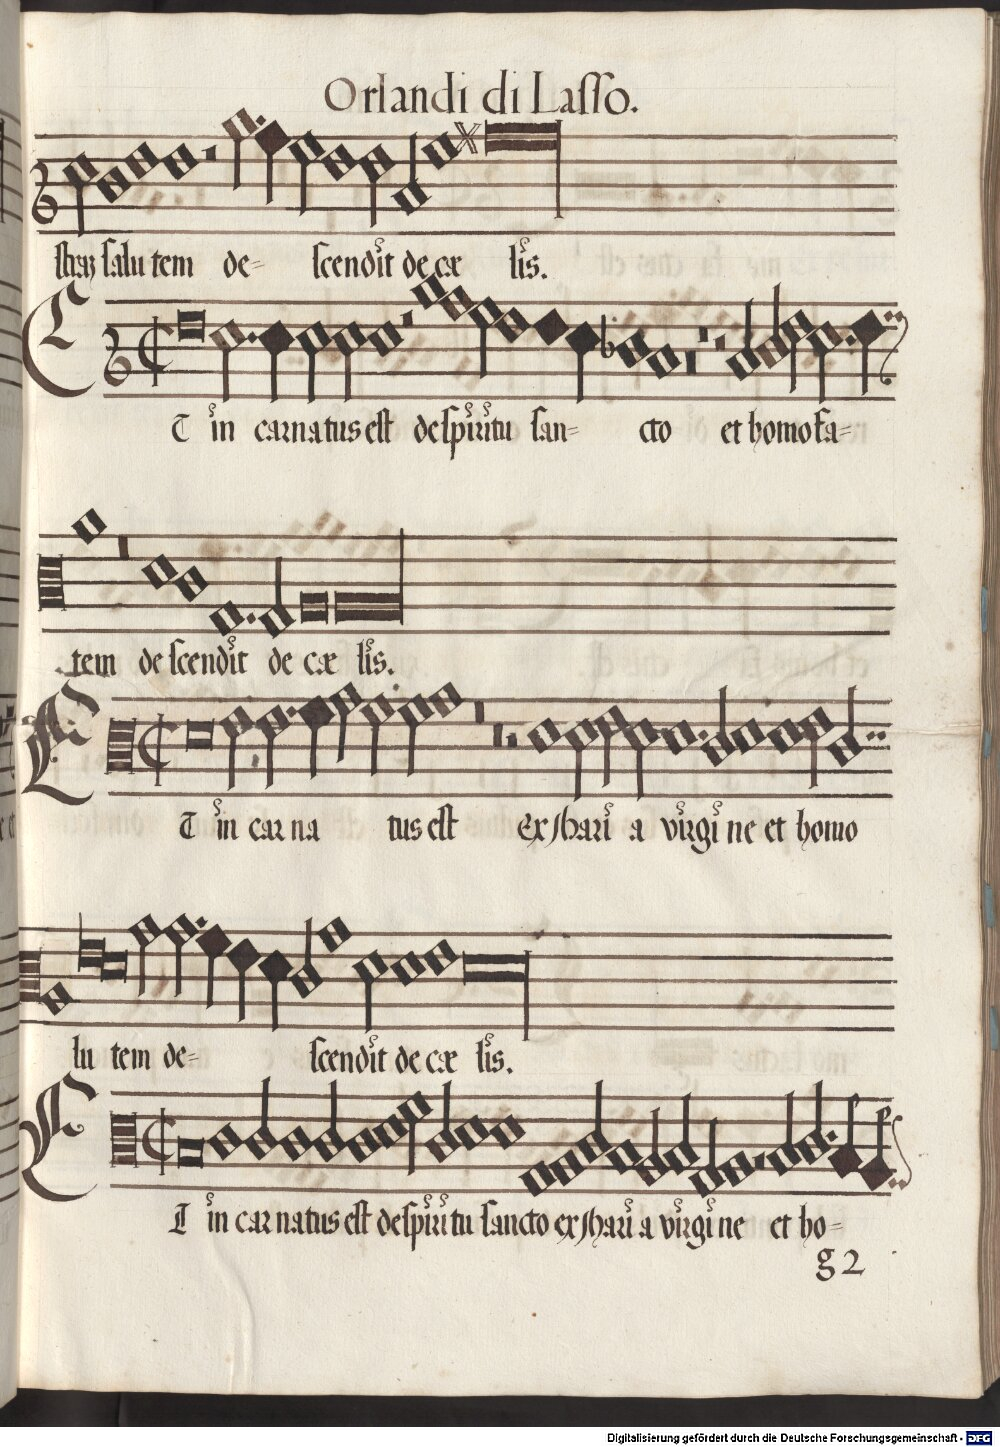 Orlandi di Lasso.
stra3 salu tem de= scendit de cæ lis.
ET in carnatus est de spiritu san= cto et homo fa=
tem de scendit de cæ lis.
ET in car na tus est ex Mari a virgi ne et homo
lu tem de= scendit de cæ lis.
ET in car natus est de spiritu sancto ex Mari a virgi ne et ho=
g 2
Digitalisierung gefördert durch die Deutsche Forschungsgemeinschaft - DFG